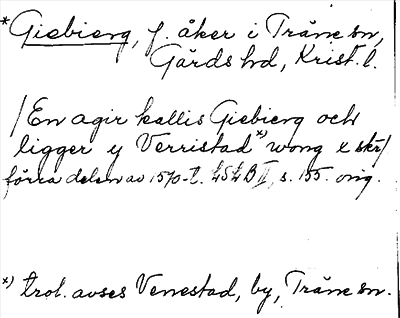 *Giebierg, f. åker i Träne sn,
Gärds hd, Krist. l.
/En agir kallis Giebierg och
ligger y Verristad*) wong etc skr/
förra delen av 1570-t. LSLB II, s. 155. orig.
*) trol. avses Vennestad, by, Träne sn.